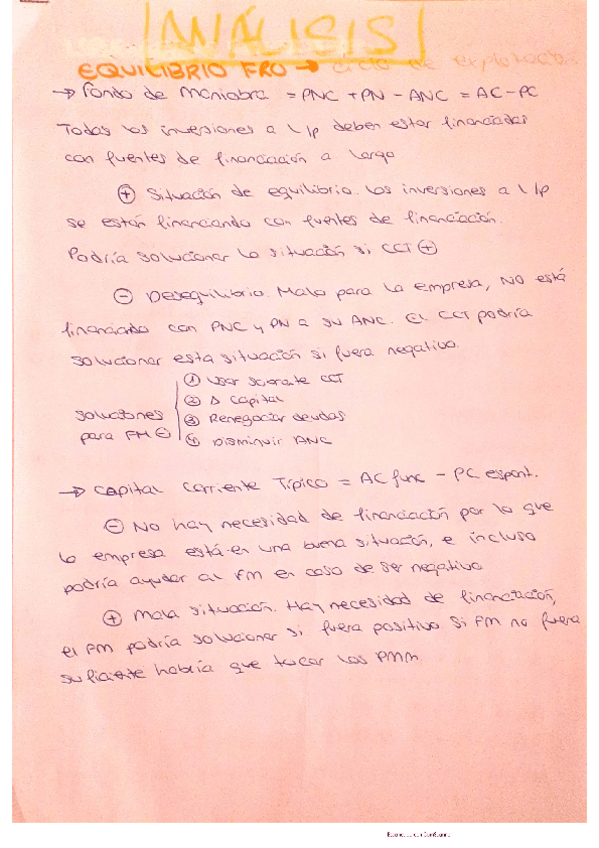 ANÁLISIS
EQUILIBRIO FRO → ciclo de explotación
→ Fondo de Maniobra = PNC + PN - ANC = AC - PC
Todas las inversiones a L/p deben estar financiadas
con fuentes de financiación a largo
⊕ Situación de equilibrio. Las inversiones a L/p
se están financiando con fuentes de financiación.
Podría solucionar la situación si CCT ⊕
⊖ Desequilibrio. Malo para la empresa, NO está
financiando con PNC y PN a su ANC. El CCT podría
solucionar esta situación si fuera negativo.
soluciones para FM ⊖
① Usar sobrante CCT
② Δ Capital
③ Renegociar deudas
④ Disminuir ANC
→ Capital Corriente Típico = AC func - PC espont.
⊖ No hay necesidad de financiación por lo que
la empresa está en una buena situación, e incluso
podría ayudar al FM en caso de ser negativo
⊕ Mala situación. Hay necesidad de financiación,
el FM podría solucionar si fuera positivo. Si FM no fuera
suficiente habría que tocar los PMM.